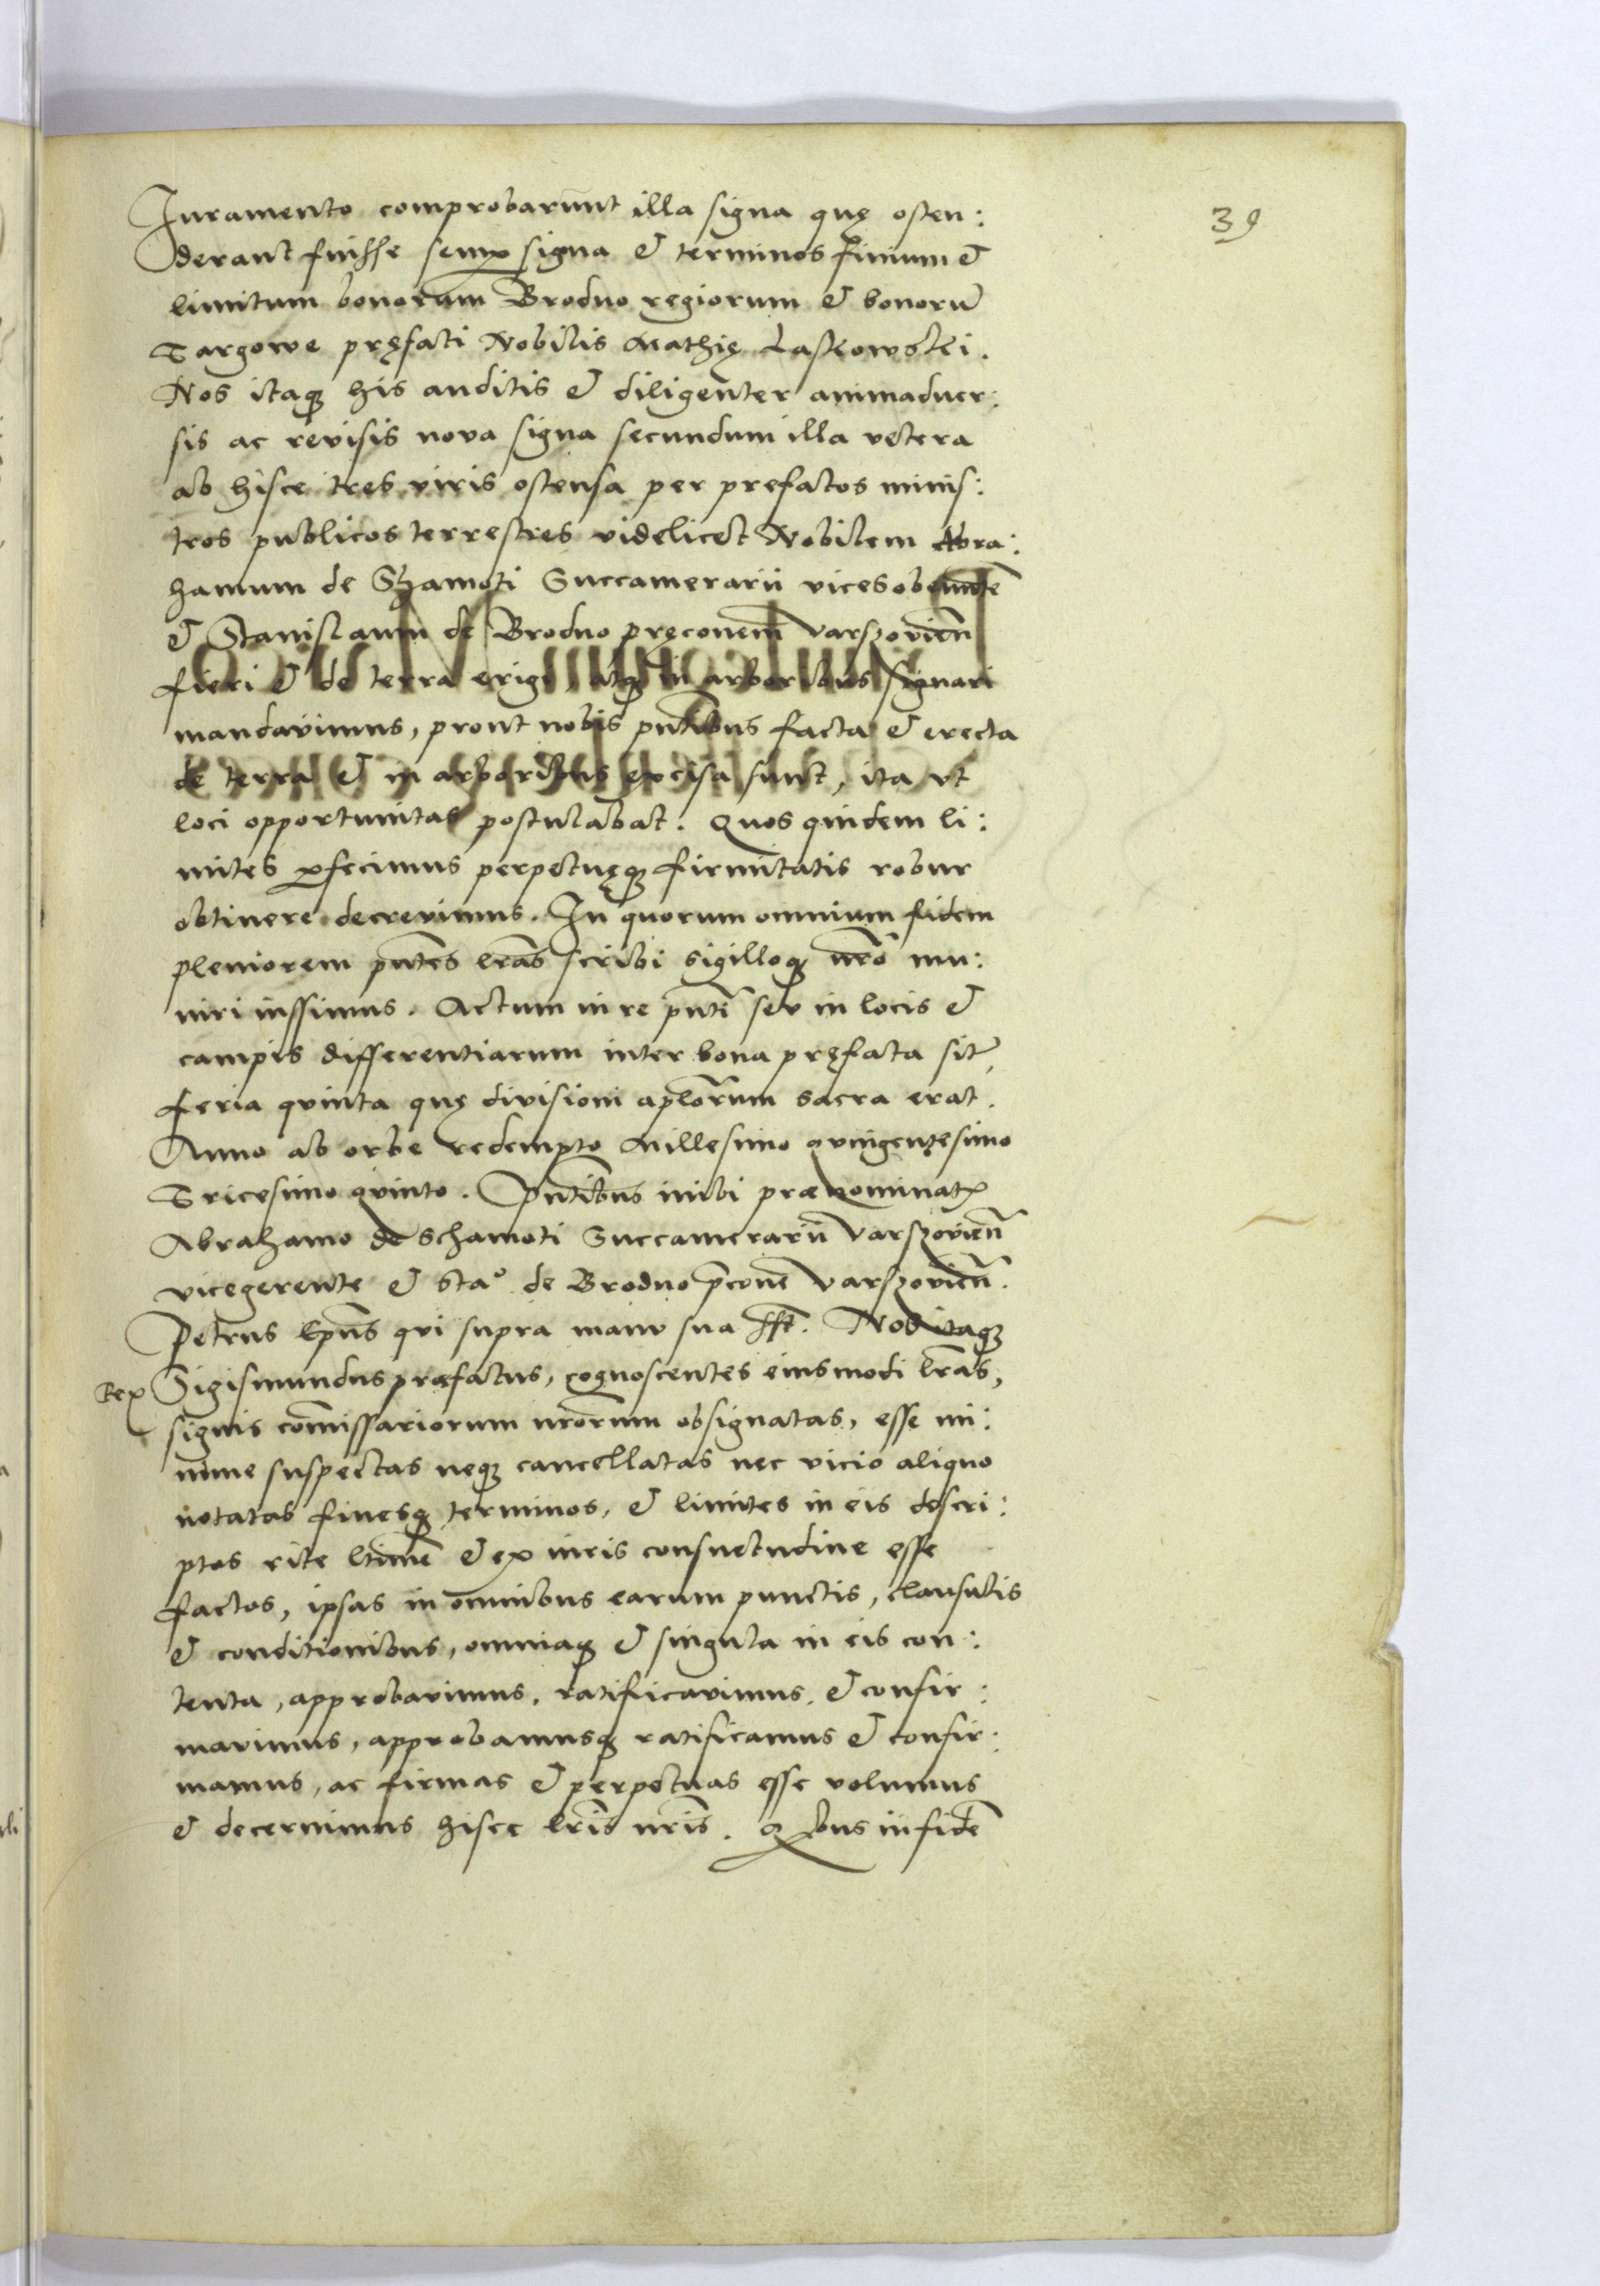 39
Juramento comprobarunt illa signa quę osten:
derant fuisse semp signa & terminos finium &
limitum bonorum Brodno regiorum & bonorū
Targowe pręfati Nobilis Mathię Laskowskei.
Nos itaq his auditis & diligenter animaduer:
sis ac revisis nova signa secundum illa vetera
ab hisce tres viris ostensa per prefatos minis:
tros publicos terrestres videlicet Nobilem Abra:
hamum de Shamoti Succamerarii vices obeuntē
& Stanislaum de Brodno pręconem varszovien̄
fieri & de terra erigi, atq in arboribus signari
mandavimus, prout nobis pn̄tibus facta & erecta
de terra & in arboribus excisa sunt, ita vt
loci opportunitas postulabat. Quos quidem li:
mites pfecimus perpetuęq firmitatis robur
obtinere decrevimus. In quorum omnium fidem
pleniorem pn̄tes lr̄as scribi sigilloq nr̄o mu:
niri iussimus. Actum in re pn̄ti seu in locis &
campis differentiarum inter bona pręfata sit̄,
feria quinta quę divisioni aplōrum sacra erat.
Anno ab orbe redempto Millesimo quingentęsimo
Tricesimo quinto. Pn̄tibus inibi prænominat
Abrahamo de Schamoti Succamerarii varszovien̄
vicegerente & Staº de Brodno p̄cone varszovien̄.
Petrus Ep̄us qui supra manu sua sst̄. Nos itaq
Rex Sigismundus præfatus, cognoscentes eiusmodi lr̄as,
signis com̄issariorum nr̄orum obsignatas, esse mi:
nime suspectas neq cancellatas nec vicio aliquo
notatas finesq terminos, & limites in eis descri:
ptos rite ltimē & ex iuris consuetudine esse
factos, ipsas in omnibus earum punctis, clausulis
& conditionibus, omniaq & singula in eis con:
tenta, approbavimus, ratificavimus & confir:
mavimus, approbamusq ratificamus & confir:
mamus, ac firmas & perpetuas esse volumus
& decernimus hisce lr̄is nr̄is. Qbus in fidē